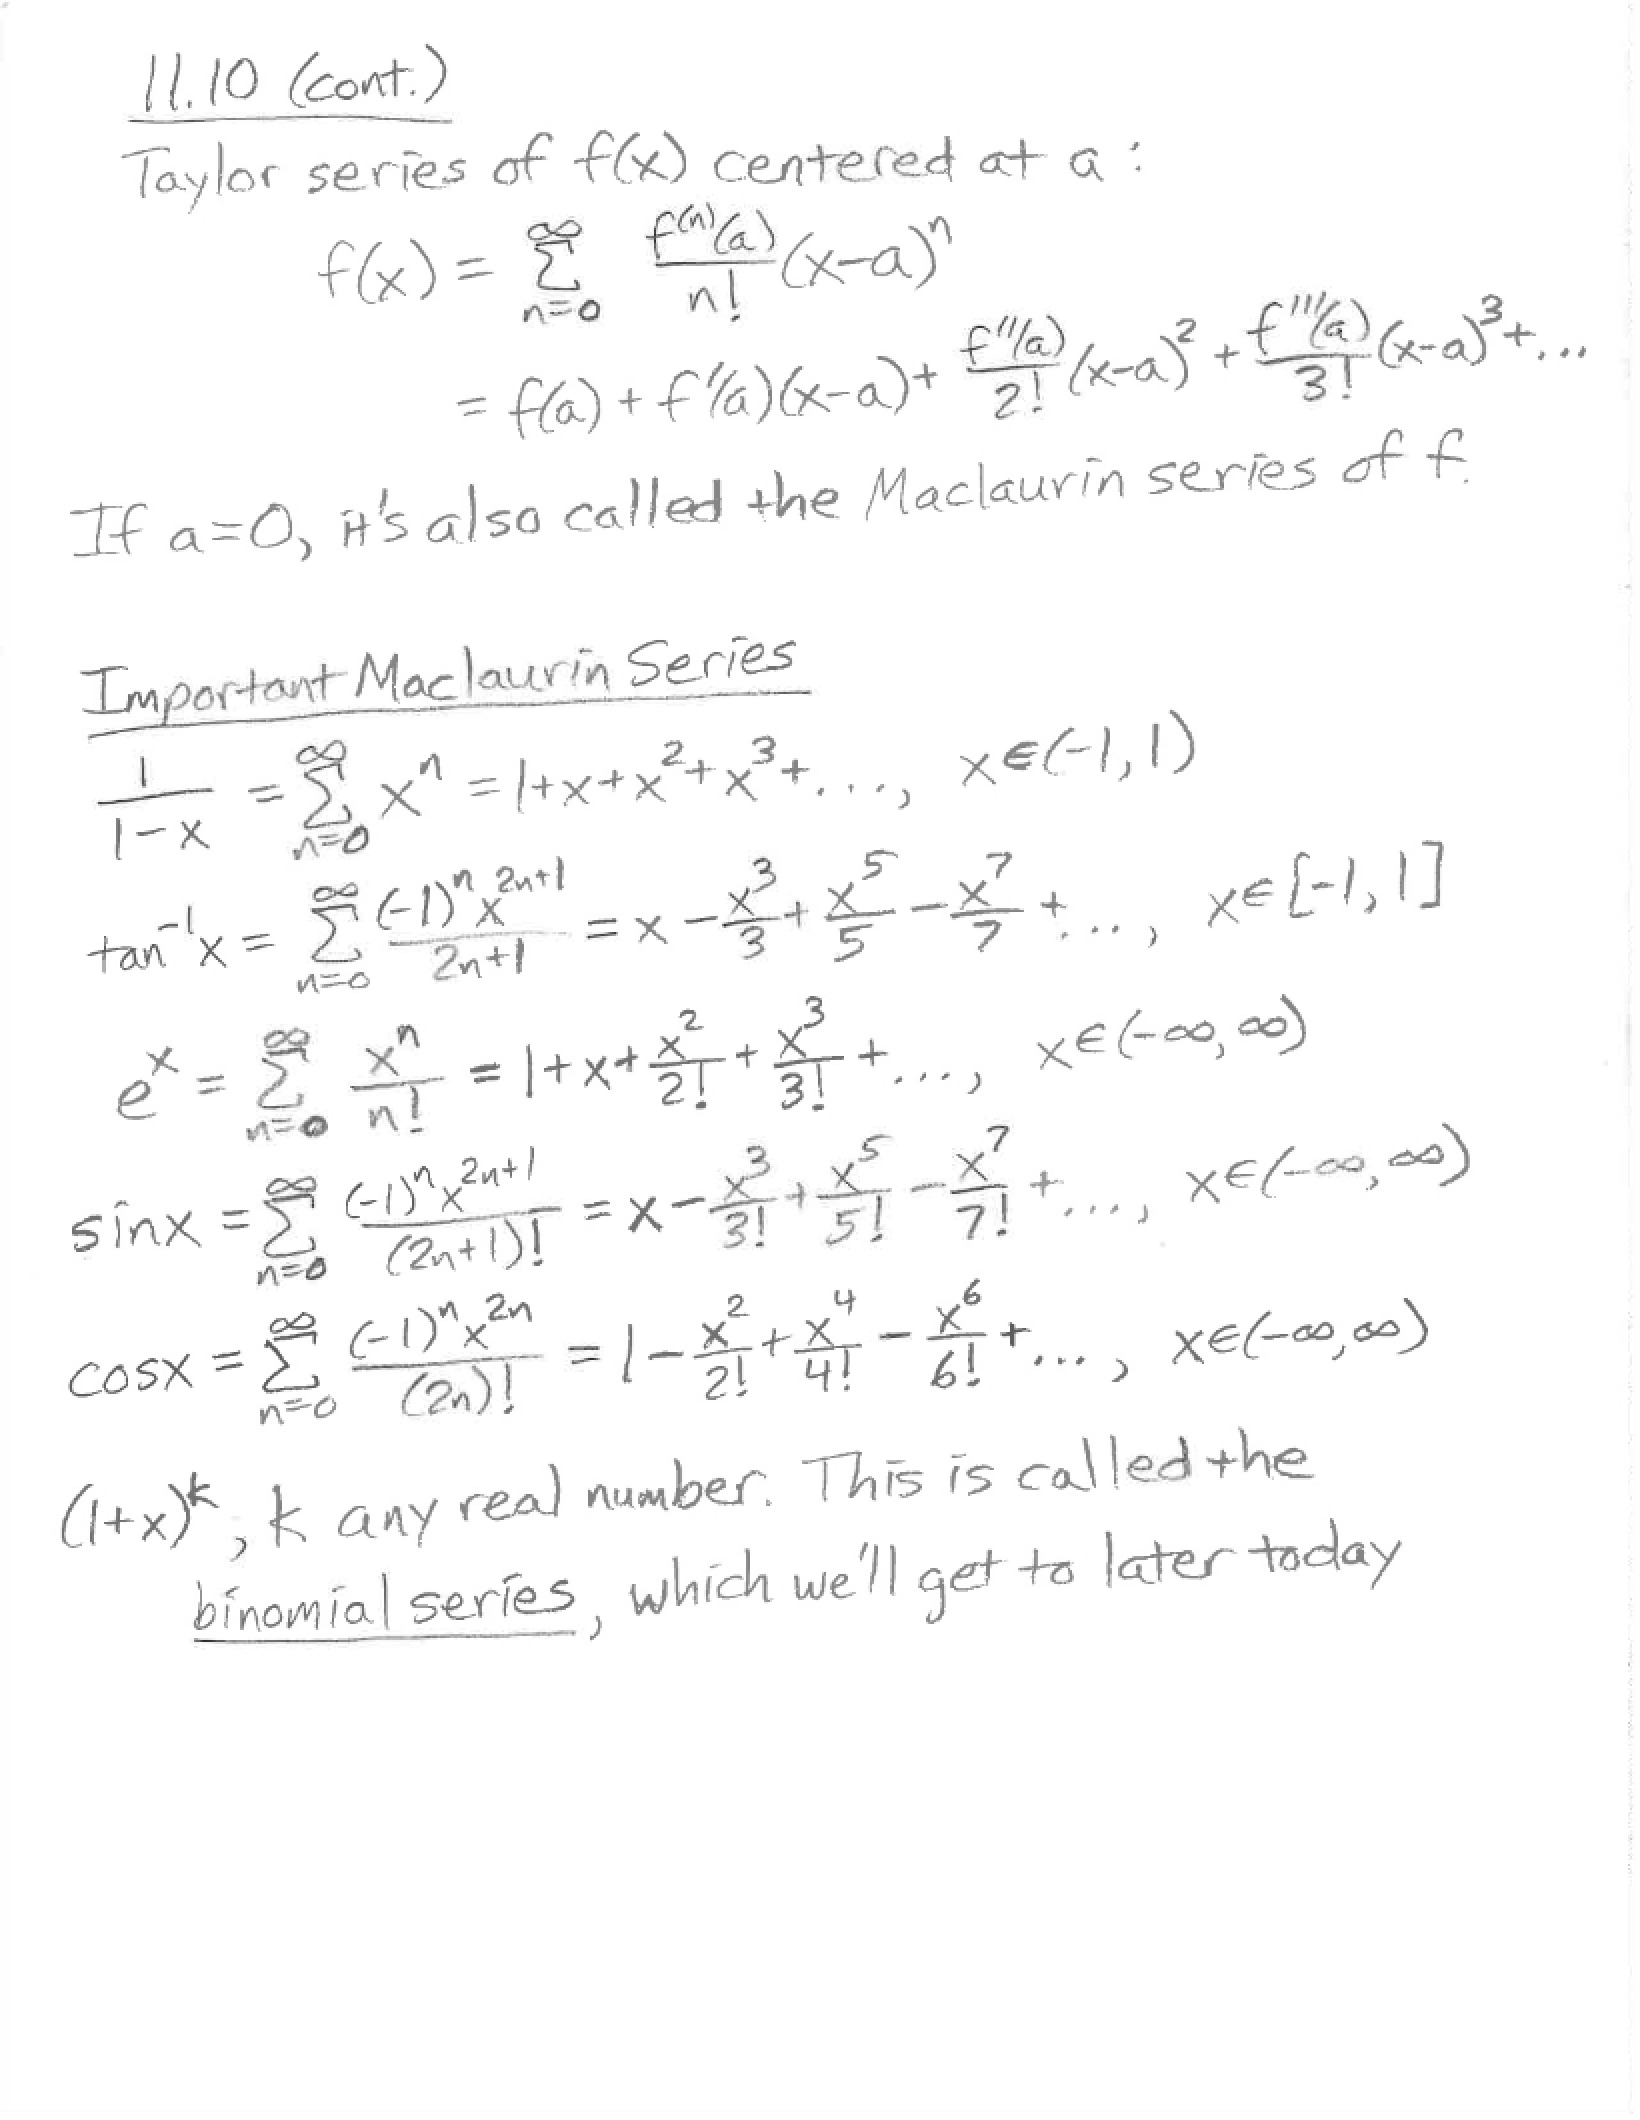 11.10 (cont.)
Taylor series of f(x) centered at a:
f(x) = ∑_{n=0}^{∞} \frac{f^{(n)}(a)}{n!} (x-a)^n
= f(a) + f'(a)(x-a) + \frac{f''(a)}{2!} (x-a)^2 + \frac{f'''(a)}{3!} (x-a)^3 + ...
If a=0, it's also called the Maclaurin series of f.
Important Maclaurin Series
\frac{1}{1-x} = ∑_{n=0}^{∞} x^n = 1+x+x^2+x^3+..., x∈(-1,1)
tan^{-1}x = ∑_{n=0}^{∞} \frac{(-1)^n x^{2n+1}}{2n+1} = x - \frac{x^3}{3} + \frac{x^5}{5} - \frac{x^7}{7} + ..., x∈[-1,1]
e^x = ∑_{n=0}^{∞} \frac{x^n}{n!} = 1+x+\frac{x^2}{2!} + \frac{x^3}{3!} + ..., x∈(-∞,∞)
sinx = ∑_{n=0}^{∞} \frac{(-1)^n x^{2n+1}}{(2n+1)!} = x - \frac{x^3}{3!} + \frac{x^5}{5!} - \frac{x^7}{7!} + ..., x∈(-∞,∞)
cosx = ∑_{n=0}^{∞} \frac{(-1)^n x^{2n}}{(2n)!} = 1 - \frac{x^2}{2!} + \frac{x^4}{4!} - \frac{x^6}{6!} + ..., x∈(-∞,∞)
(1+x)^k, k any real number. This is called the
binomial series, which we'll get to later today